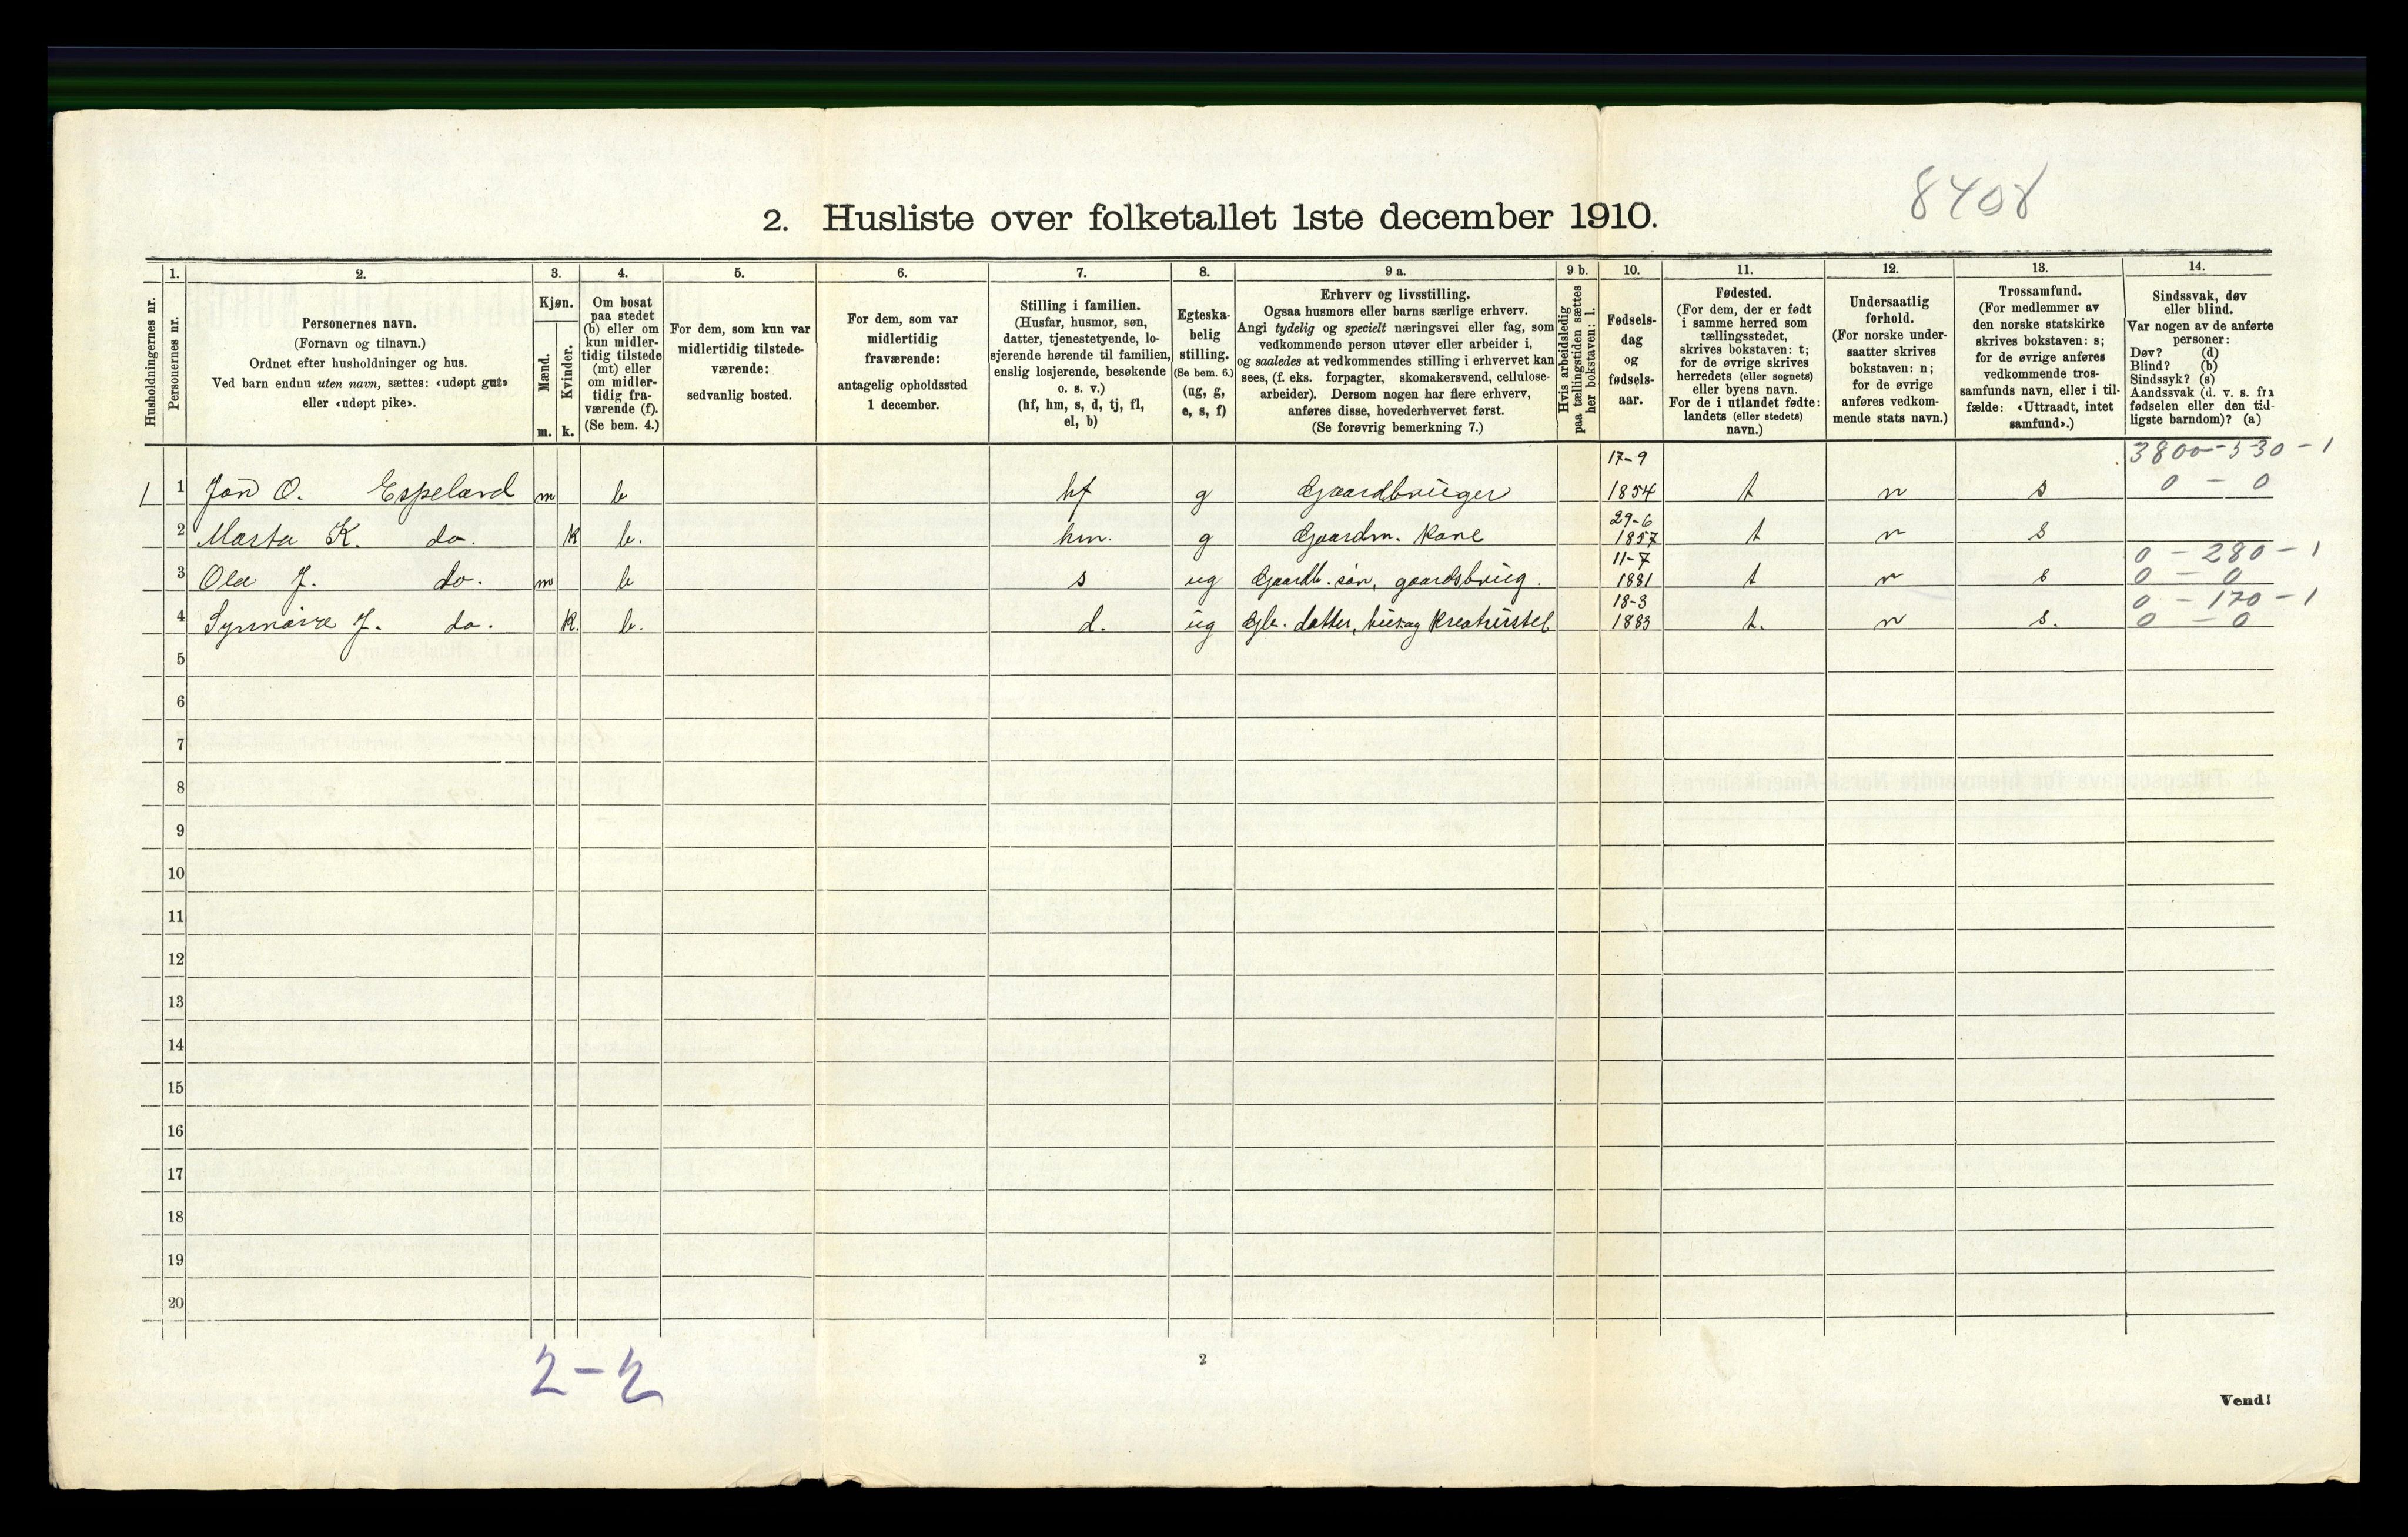 8408
2. Husliste over folketallet 1ste december 1910.
Husholdningernes nr.
1.
Personernes nr.
2.
Personernes navn.
(Fornavn og tilnavn.)
Ordnet efter husholdninger og hus.
Ved barn endnu uten navn, sættes: «udøpt gut»
eller «udøpt pike».
3.
Kjøn.
Mænd.
m.
Kvinder.
k.
4.
Om bosat
paa stedet
(b) eller om
kun midler-
tidig tilstede
(mt) eller
om midler-
tidig fra-
værende (f).
(Se bem. 4.)
5.
For dem, som kun var
midlertidig tilstede-
værende:
sedvanlig bosted.
6.
For dem, som var
midlertidig
fraværende:
antagelig opholdssted
1 december.
7.
Stilling i familien.
(Husfar, husmor, søn,
datter, tjenestetyende, lo-
sjerende hørende til familien,
enslig losjerende, besøkende
o. s. v.)
(hf, hm, s, d, tj, fl,
el, b)
8.
Egteska-
belig
stilling.
(Se bem. 6.)
(ug, g,
e, s, f)
9 a.
Erhverv og livsstilling.
Ogsaa husmors eller barns særlige erhverv.
Angi tydelig og specielt næringsvei eller fag, som
vedkommende person utøver eller arbeider i,
og saaledes at vedkommendes stilling i erhvervet kan
sees, (f. eks. forpagter, skomakersvend, cellulose-
arbeider). Dersom nogen har flere erhverv,
anføres disse, hovederhvervet først.
(Se forøvrig bemerkning 7.)
9 b.
Hvis arbeidsledig
paa tællingstiden sættes
her bokstaven: l.
10.
Fødsels-
dag
og
fødsels-
aar.
11.
Fødested.
(For dem, der er født
i samme herred som
tællingsstedet,
skrives bokstaven: t;
for de øvrige skrives
herredets (eller sognets)
eller byens navn.
For de i utlandet fødte:
landets (eller stedets)
navn.)
12.
Undersaatlig
forhold.
(For norske under-
saatter skrives
bokstaven: n;
for de øvrige
anføres vedkom-
mende stats navn.)
13.
Trossamfund.
(For medlemmer av
den norske statskirke
skrives bokstaven: s;
for de øvrige anføres
vedkommende tros-
samfunds navn, eller i til-
fælde: «Uttraadt, intet
samfund».)
14.
Sindssvak, døv
eller blind.
Var nogen av de anførte
personer:
Døv? (d)
Blind? (b)
Sindssyk? (s)
Aandssvak (d. v. s. fra
fødselen eller den tid-
ligste barndom)? (a)
3800-530-1
1 1 Jon O. Espeland m b hf g Gaardbruger 17-9 1854 t n s 0 - 0
2 Marta K. do. k b. hm. g Gaardm. kone 29-6 1857 t n s
0 - 280 - 1
3 Ola J. do. m b s ug Gaardb. søn, gaardsbrug. 11-7 1881 t n s 0 - 0
0 - 170 - 1
4 J. do. k. b. d. ug Gb. datter, hus og kreaturstel 18-3 1883 t. n s. 0 - 0
5
6
7
8
9
10
11
12
13
14
15
16
17
18
19
20
2-2
2
Vend!